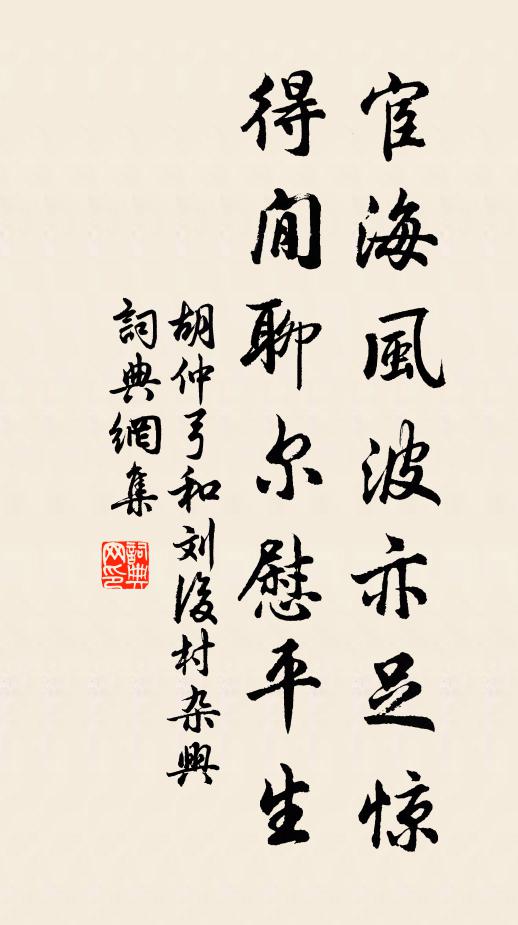 宦海風波亦足惊
得閒聊尔慰平生
胡仲弓和刘後村杂興
詞典網集
詞典
网印